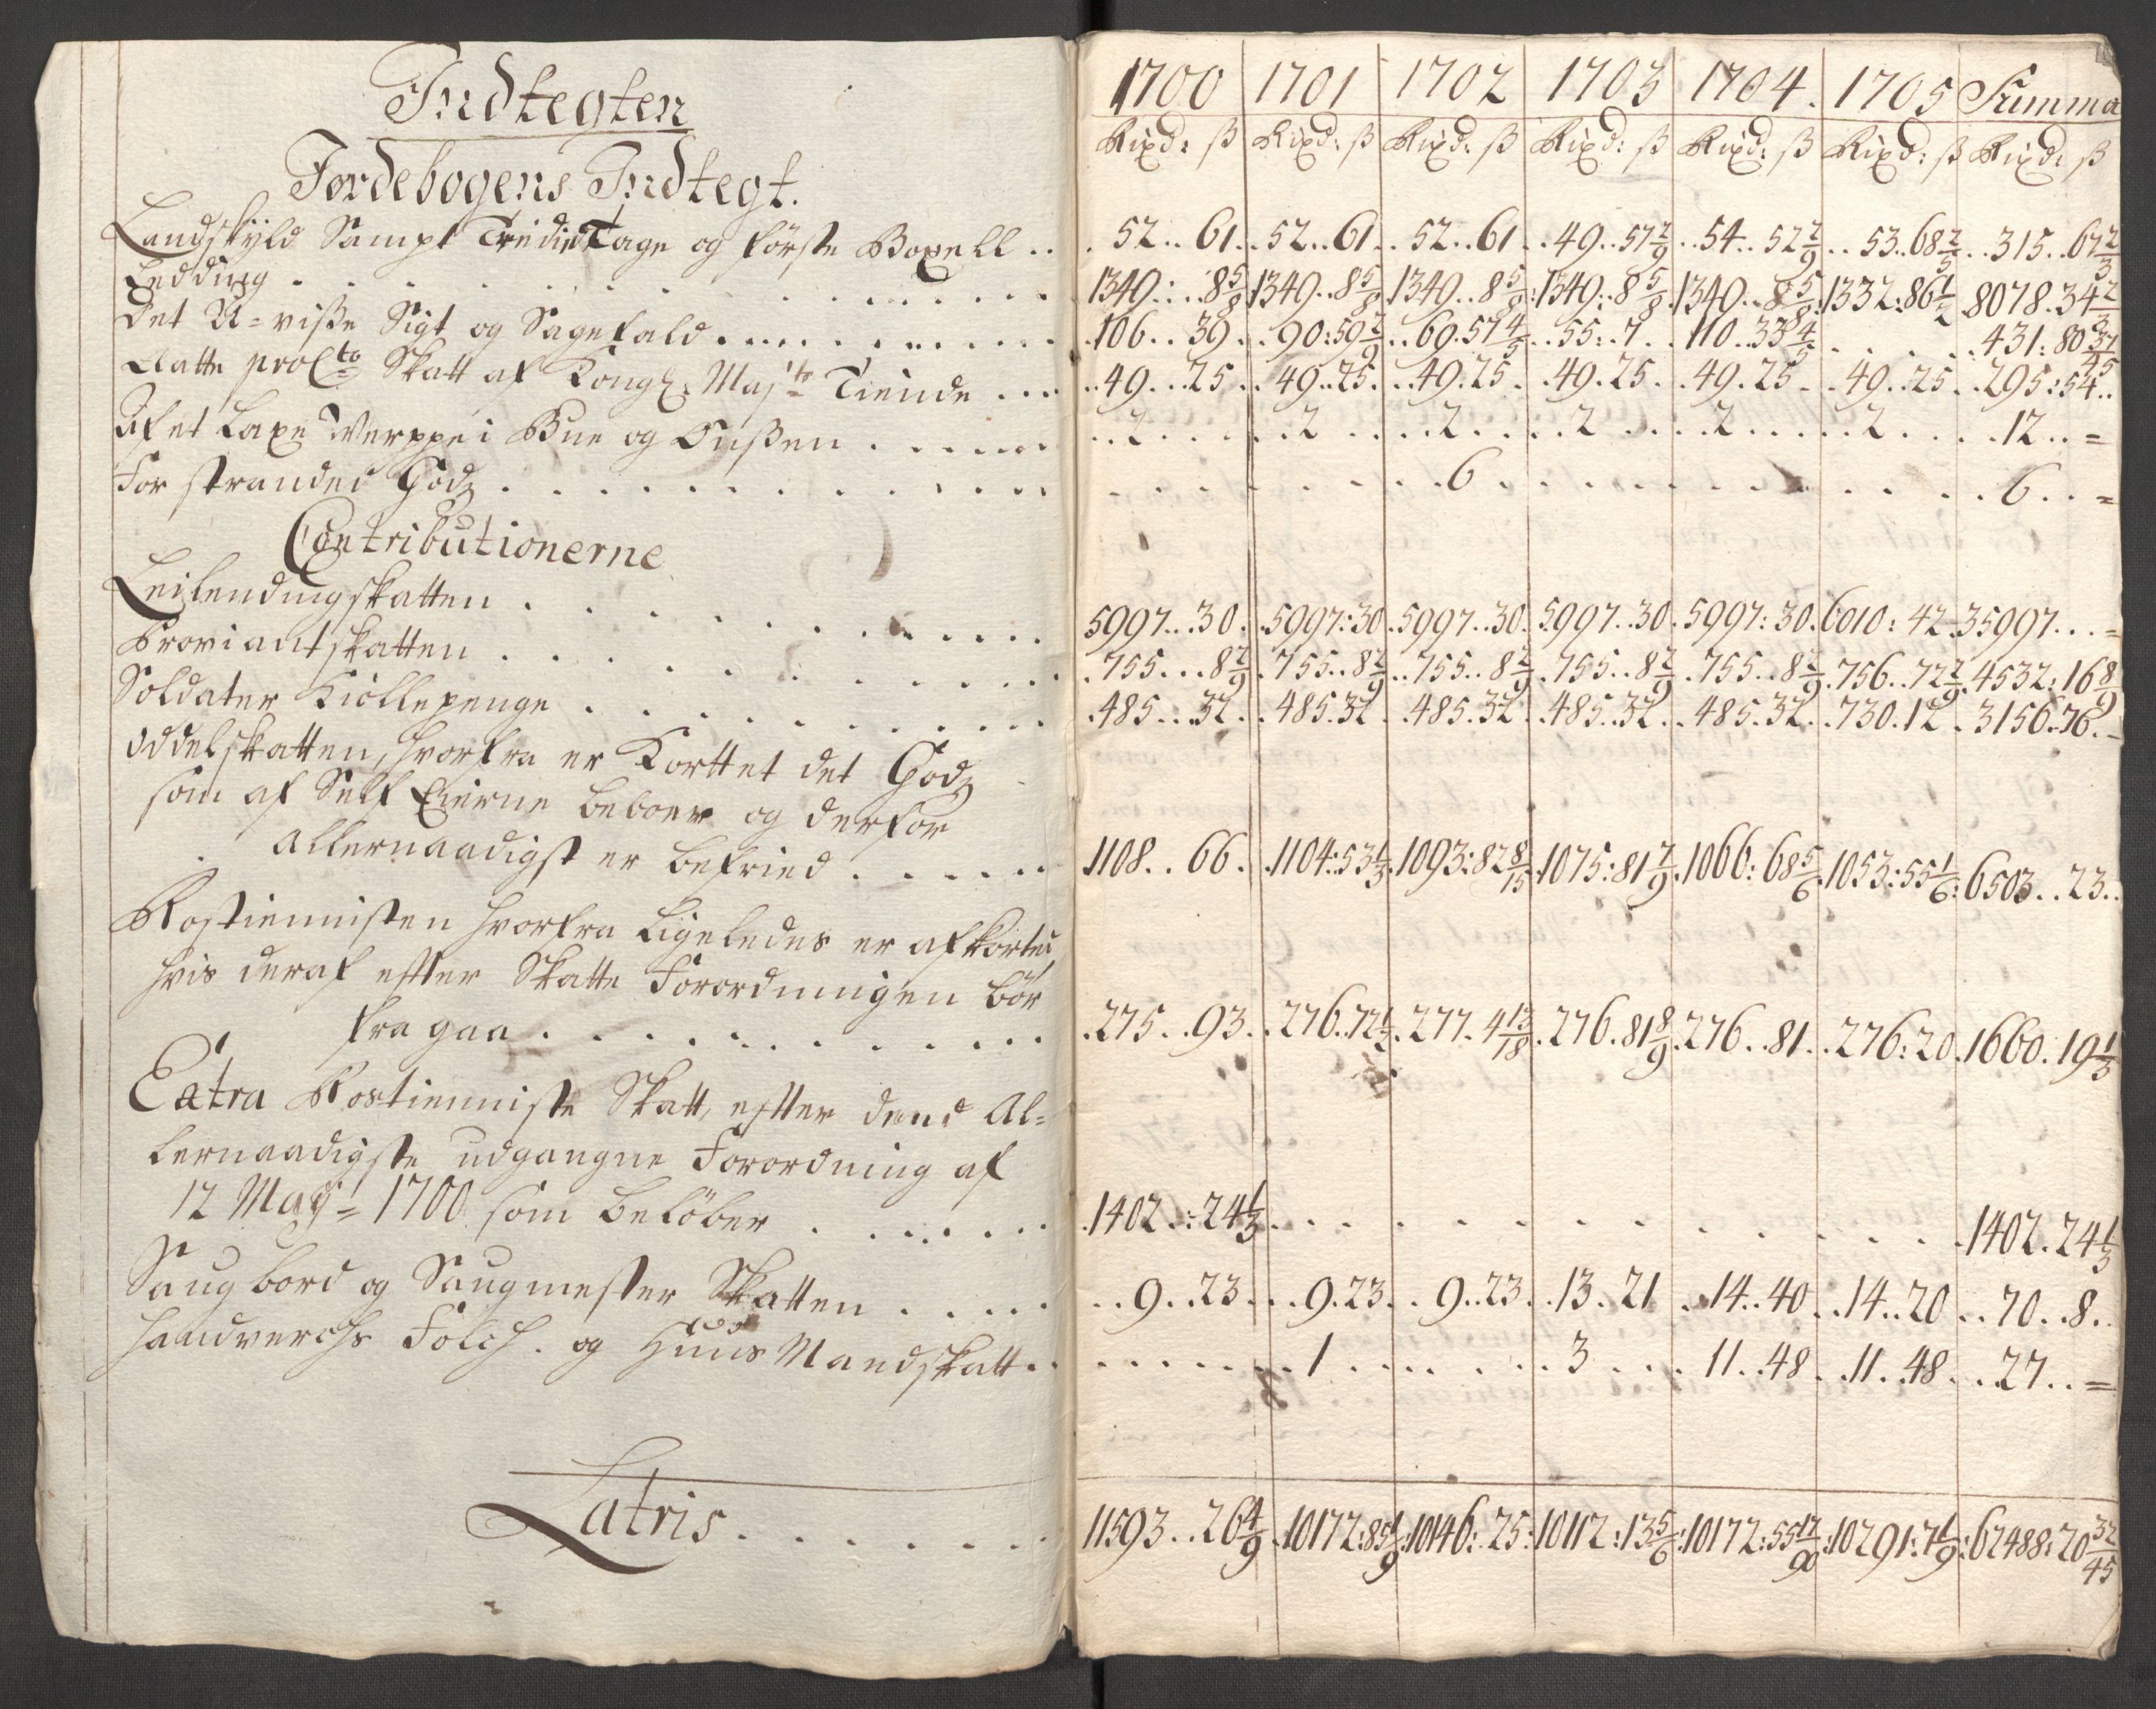 Indtegten
Jordebogens Indtegt.
Landskyld Sampt Tredie Tage og förste Boxell . .
Ledding . . . . . . . . . . . .
Det U-visse Sigt og Sagefald . . . . . . . . .
Aatte proC^to Skatt af Kongl. Maj^ts Tiende . . .
Af et Laxe Werppe i Bue og Oussen . . . . .
For strandet Godz . . . . . . . . . . .
Contributionerne
Leilendingskatten . . . . . . . . . .
Proviantskatten . . . . . . . . . .
Soldater Kiöllepenge . . . . . . . . .
Oddelskatten, hvorfra er Korttet det Godz
som af Self Eierne beboer og derfor
allernaadigst er befried . . . . . .
Rostienisten hvorfra ligeledes er afkorted
hvis deraf efter Skatte Forordningen bör
fragaa . . . . . . . . . .
Extra Rostieniste Skatt, efter dend Al-
lernaadigste udgangne Forordning af
12 Maij 1700 som belöber . . . . . .
Saugbord og Saugmester Skatten . . . . .
Handverchs Folch. og Huus Mandskatt . .
Latris . . . . . .
1700 1701 1702 1703 1704. 1705 Summa
Rixd: ß Rixd: ß Rixd: ß Rixd: ß Rixd: ß Rixd: ß Rixd: ß
52..61. 52..61. 52..61. 49..57 2/9. 54..52 2/9. 53..68 2/5. 315..67 2/3
1349..8 5/8 1349..8 5/8 1349..8 5/8 1349..8 5/8 1349..8 5/8 1332:86 1/2 8078.34 2/3
106..39. 90:59 2/9 69.57 4/5 55:.7. 110..33 4/5 . . . 431:80 37/45
49..25. 49..25. 49.25. 49.25. 49.25. 49..25. 295:54..
2 2 2 2 2 2 12..=
6 6..=
5997..30. 5997:30 5997..30. 5997..30. 5997:30. 6010:42. 35997...=
755...8 2/9 755..8 2/9 755..8 2/9 755..8 2/9 755..8 2/9 756..72 2/9 4532:16 8/9
485..32. 485.32. 485.32. 485..32. 485.32. 730.12. 3156.76.=
1108..66. 1104:53 1/3 1093:82 8/15 1075:81 7/9 1066:68 5/6 1053:55 1/6 6503..23..
275..93. 276..72 1/3 277.4 13/18 276.81 8/9 276..81. 276:20. 1660.19 1/3
1402.:24 1/3 . . . . . 1402.24 1/3
9..23. 9.23. 9..23. 13.21 14..40. 14..20 70..8..
. . . 1 . . . 3 . . 11..48. 11..48. 27..=
11593..26 4/9 10172:85 1/9 10146:25: 10112:13 5/6 10172:55 17/90 10291:7 1/9 62488:20 32/45